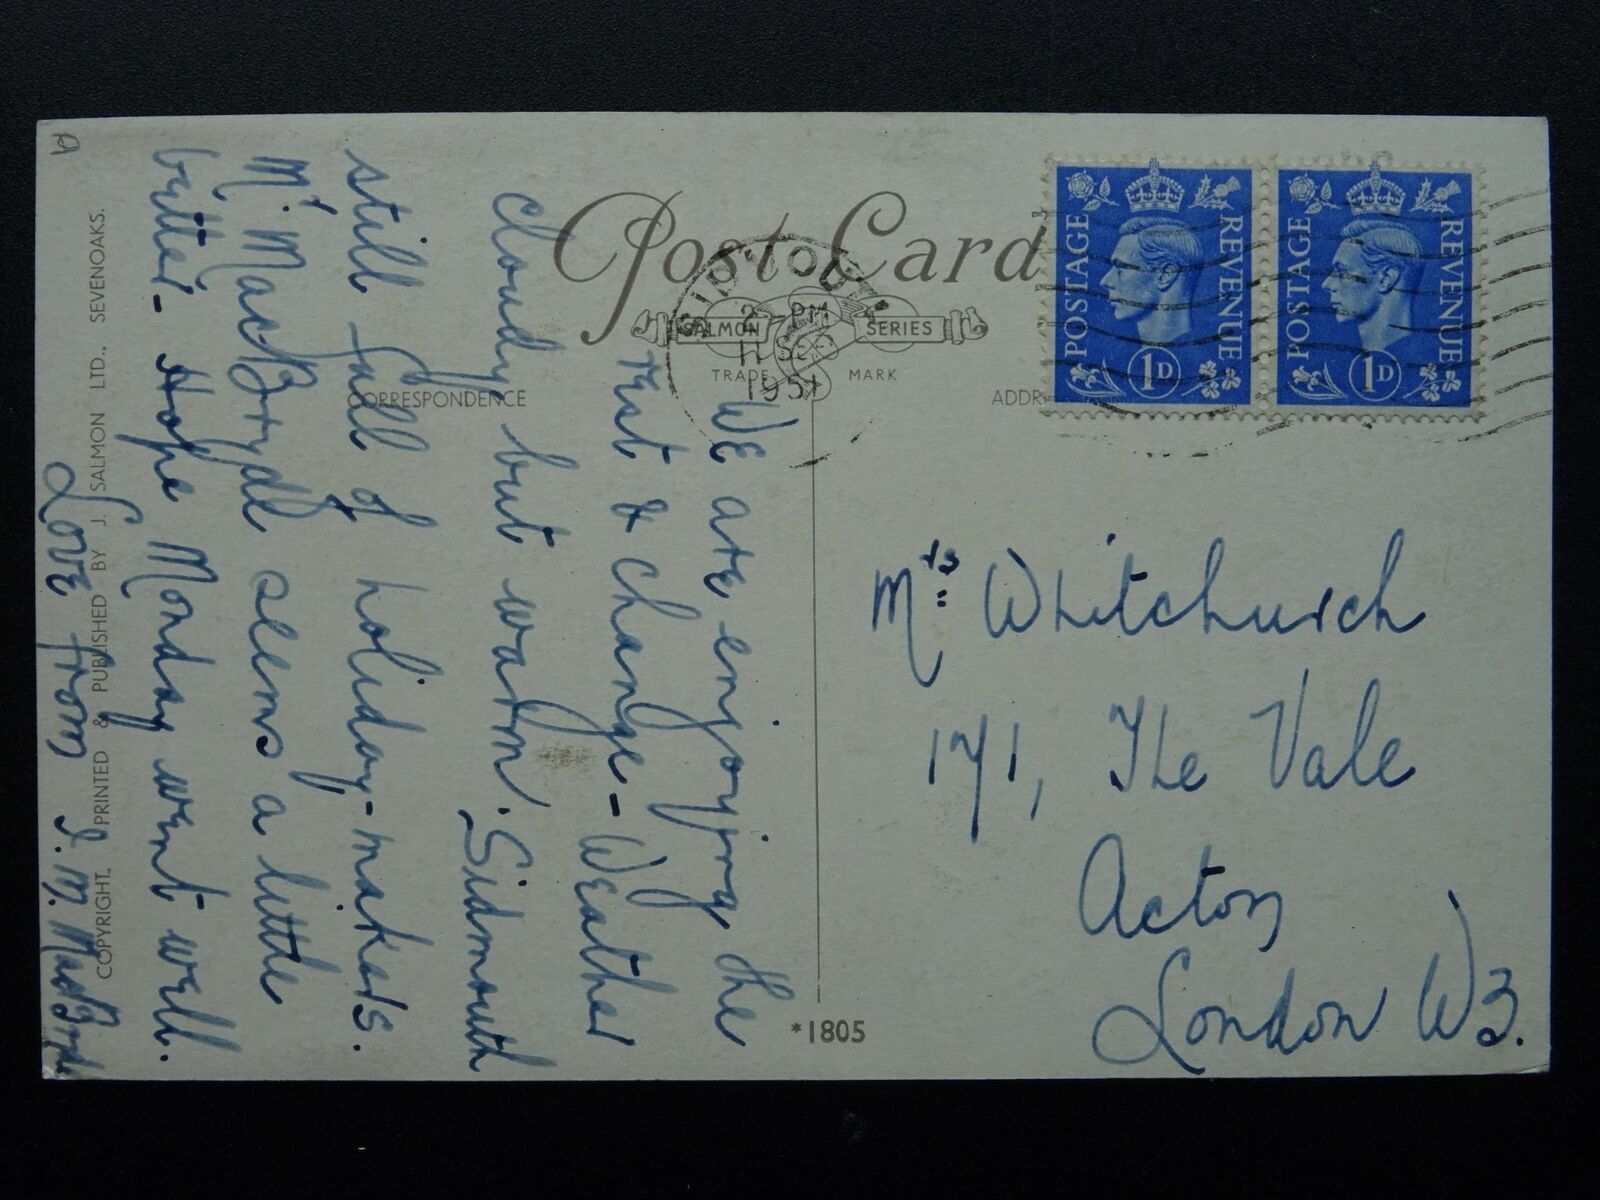 Post Card
SALMON SERIES
TRADE MARK
CORRESPONDENCE
ADDR
SIDMOUTH
2 - PM
11 SEP
1951
POSTAGE REVENUE
1D
POSTAGE REVENUE
1D
WE are enjoying the
rest & change - Weather
cloudy but warm. Sidmouth
still full of holiday-makers.
Mr. MacBryde seems a little
better - Hope Monday went well.
Love from I. M. MacBryde
Mrs Whitchurch
171, The Vale
Acton
London W3.
*1805
COPYRIGHT. PRINTED & PUBLISHED BY J. SALMON LTD., SEVENOAKS.